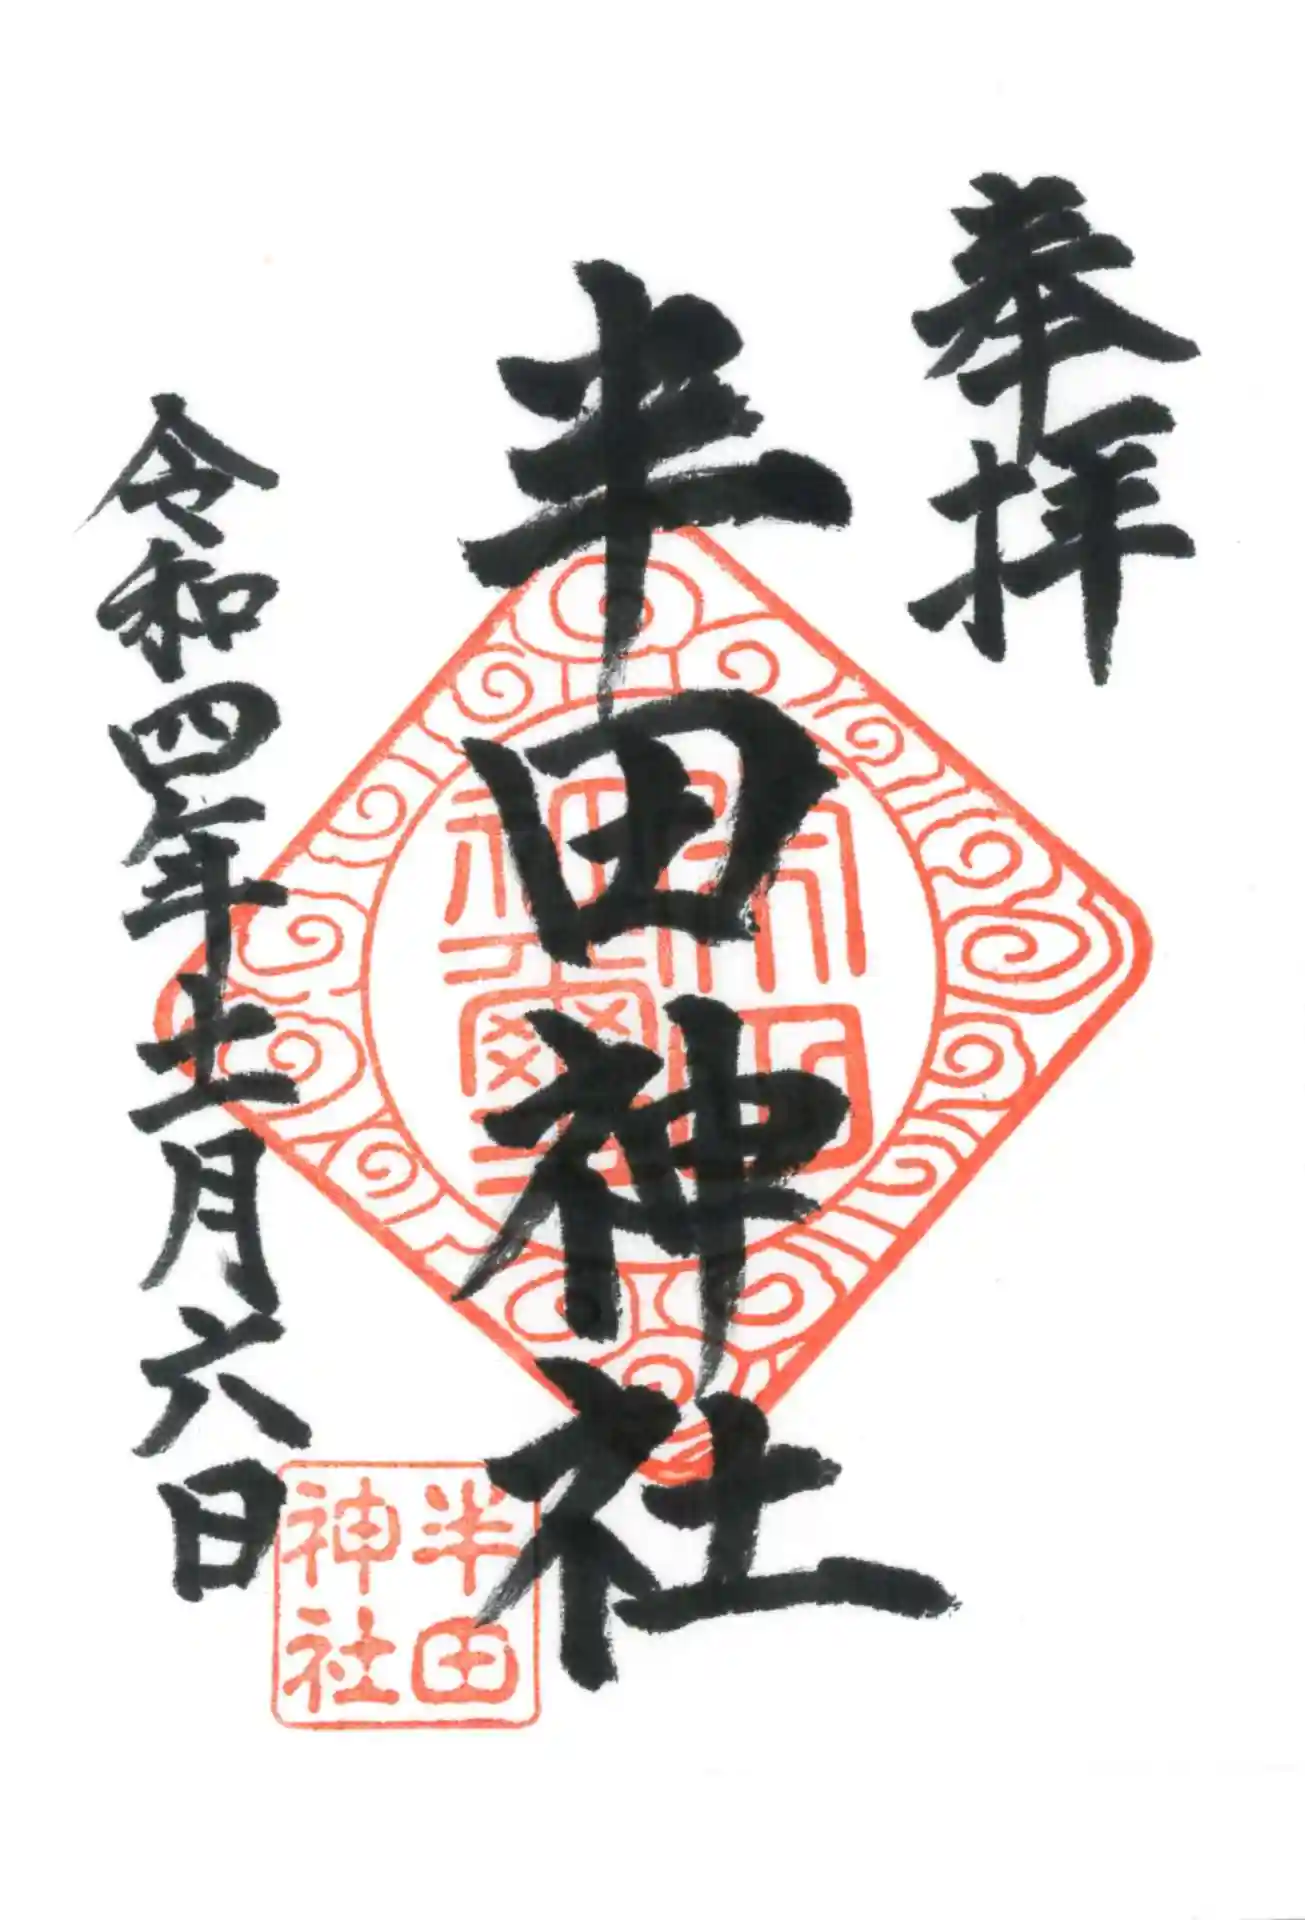 奉拝
半田神社
令和四年十一月六日
半田
神社